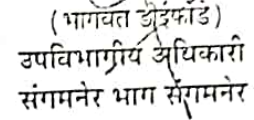 (भागवत डोईफोडे)
उपविभागीय अधिकारी
संगमनेर भाग संगमनेर